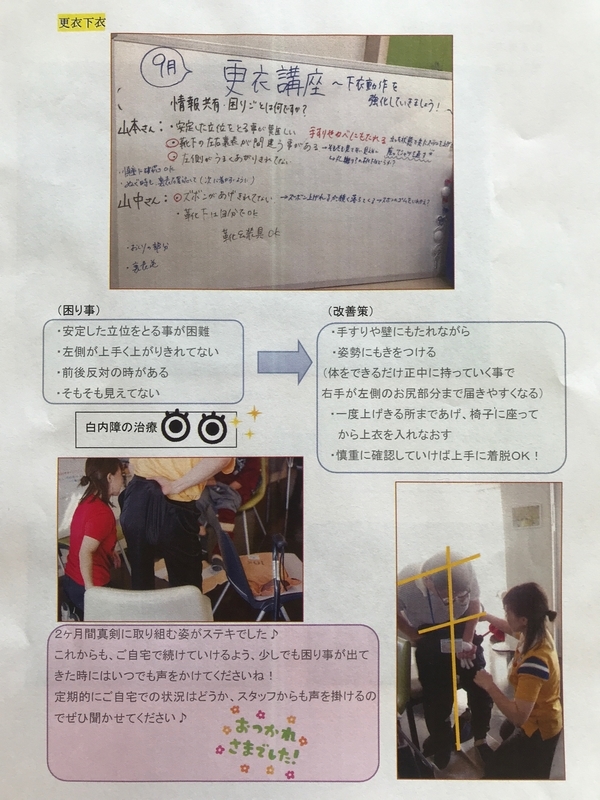 更衣下衣
9月
更衣講座 ～下衣動作を
強化していきましょう！
情報共有・困りごとは何ですか？
山本さん：・安定した立位をとる事が難しい
靴下の左右裏表が間違う事がある
左側がうまくあがりきれてない
山中さん：ズボンがあげきれてない
（困り事）
・安定した立位をとる事が困難
・左側が上手く上がりきれてない
・前後反対の時がある
・そもそも見えてない
白内障の治療
（改善策）
・手すりや壁にもたれながら
・姿勢にもきをつける
（体をできるだけ正中に持っていく事で
右手が左側のお尻部分まで届きやすくなる）
・一度上げきる所まであげ、椅子に座って
から上衣を入れなおす
・慎重に確認していけば上手に着脱OK！
2ヶ月間真剣に取り組む姿がステキでした♪
これからも、ご自宅で続けていけるよう、少しでも困り事が出て
きた時にはいつでも声をかけてくださいね！
定期的にご自宅での状況はどうか、スタッフからも声を掛けるの
でぜひ聞かせてください♪
おつかれ
さまでした！